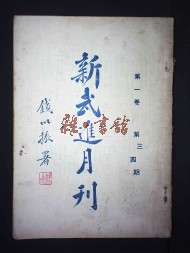 第一卷 第三四期
新武進月刊
錢以振署